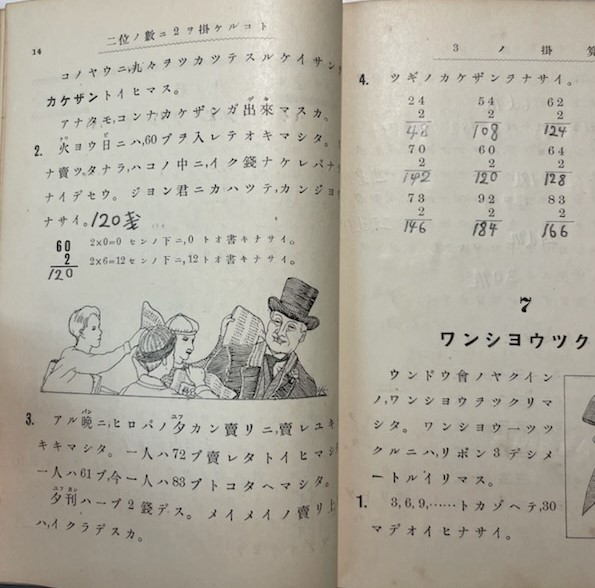 14
二位ノ數ニ2ヲ掛ケルコト
コノヤウニ,丸々ヲツカツテスルケイサン
カケザントイヒマス。
アナタモ,コンナカケザンガ出來マスカ。
2. 火ヨウ日ニハ,60ブヲ入レテオキマシタ。
ナ賣ツタナラ,ハコノ中ニ,イク錢ナケレバナ
ナイデセウ。ジヨン君ニカハツテ,カンジヨ
ナサイ。120錢
60
2
120
2×0=0 センノ下ニ,0トオ書キナサイ。
2×6=12 センノ下ニ,12トオ書キナサイ。
3. アル晩ニ,ヒロバノ夕カン賣リニ,賣レユキ
キキマシタ。一人ハ72ブ賣レタトイヒマシ
一人ハ61ブ,今一人ハ83ブトコタヘマシタ。
夕刊ハ一ブ2錢デス。メイメイノ賣リ上
ハ,イクラデスカ。
3ノ掛算
4. ツギノカケザンヲナサイ。
24 54 62
2 2 2
48 108 124
70 60 64
2 2 2
142 120 128
73 92 83
2 2 2
146 184 166
7
ワンシヨウツク
ウンドウ會ノヤクイン
ノ,ワンシヨウヲツクリマ
シタ。ワンシヨウ一ツツ
クルニハ,リボン3デシメ
ートルイリマス。
1. 3,6,9,……トカゾヘテ,30
マデオイヒナサイ。